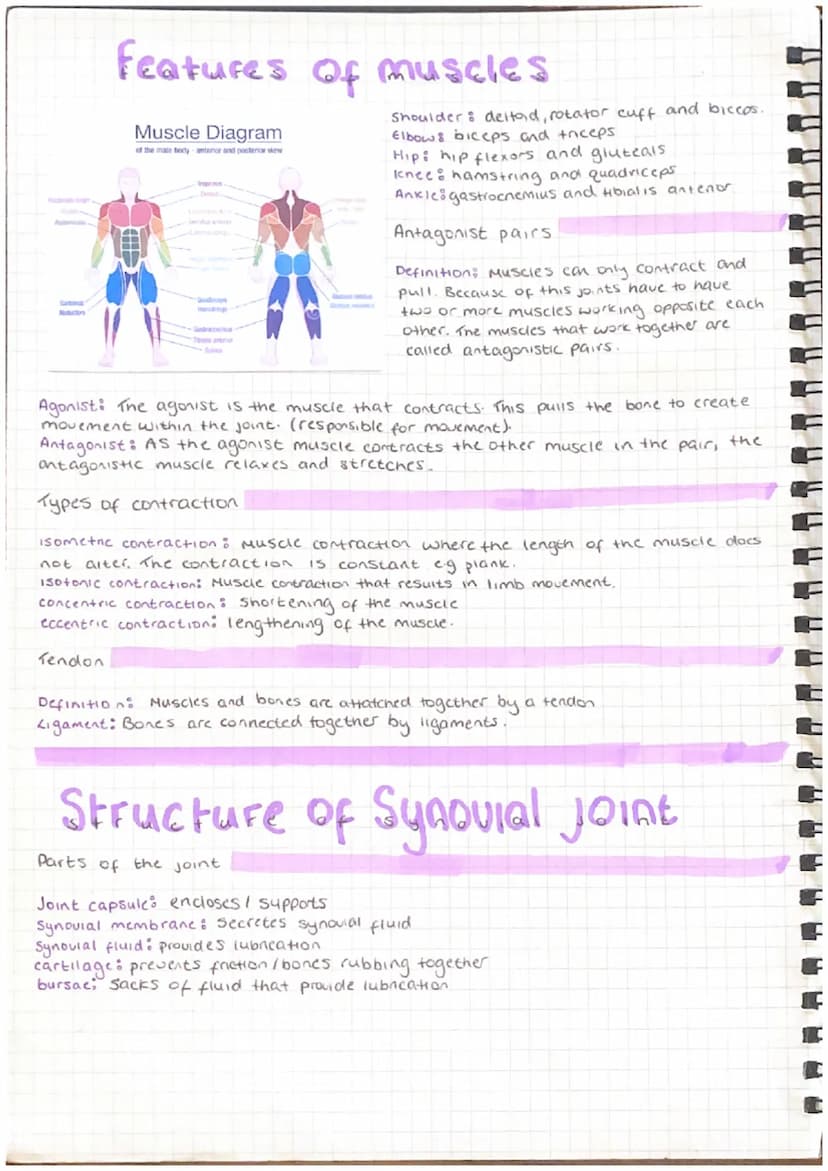 Features of muscles
Muscle Diagram
of the male body - anterior and posterior view
Shoulder: deltoid, rotator cuff and biceps.
Elbow: biceps and triceps
Hip: hip flexors and gluteals
Knee: hamstring and quadriceps
Ankle: gastrocnemius and tibialis anterior
Antagonist pairs
Definition: Muscles can only contract and
pull. Because of this joints have to have
two or more muscles working opposite each
other. The muscles that work together are
called antagonistic pairs.
Agonist: The agonist is the muscle that contracts. This pulls the bone to create
movement within the joint. (responsible for movement).
Antagonist: As the agonist muscle contracts the other muscle in the pair, the
antagonistic muscle relaxes and stretches.
Types of contraction
isometric contraction: Muscle contraction where the length of the muscle does
not alter. The contraction is constant eg plank.
isotonic contraction: Muscle contraction that results in limb movement.
concentric contraction: shortening of the muscle
eccentric contraction: lengthening of the muscle.
Tendon
Definition: Muscles and bones are attatched together by a tendon
Ligament: Bones are connected together by ligaments.
Structure of Synovial joint
Parts of the joint
Joint capsule: encloses / supports
Synovial membrane: Secretes synovial fluid
Synovial fluid: provides lubrication
cartilage: prevents friction / bones rubbing together
bursae: Sacks of fluid that provide lubrication